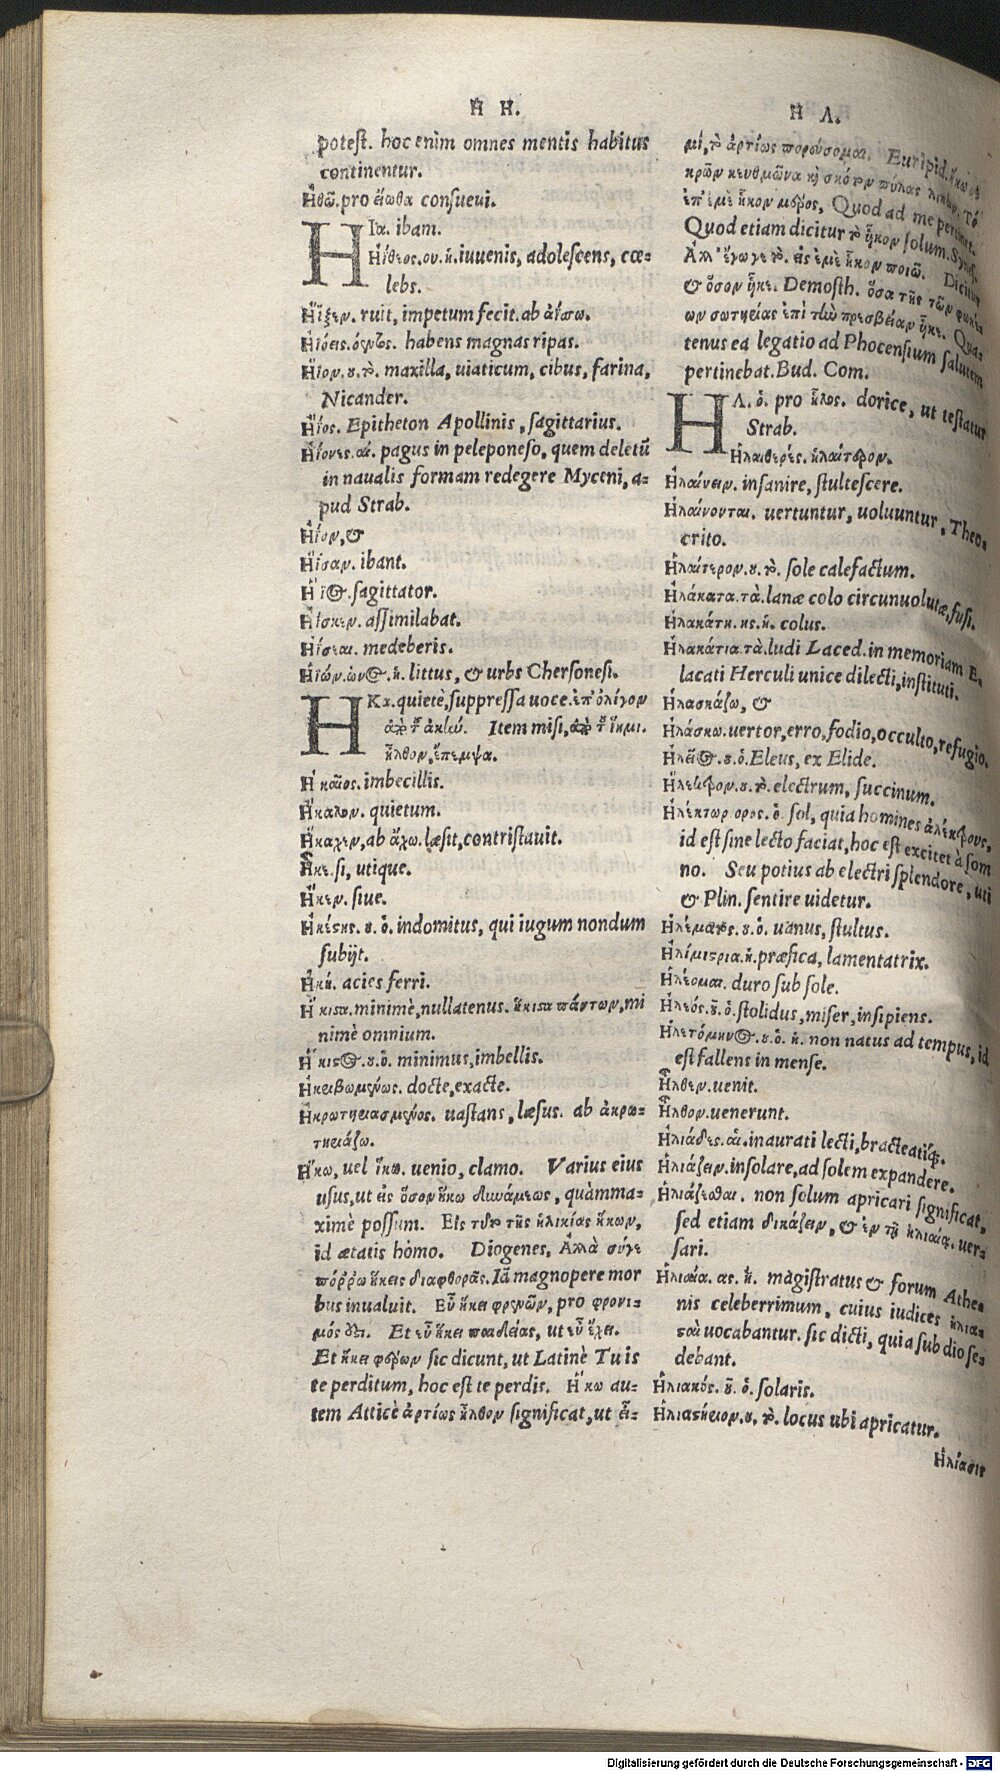 Η Η.
potest. hoc enim omnes mentis habitus
continentur.
Ἠθῶ. pro εἴωθα consueui.
ΗΙα. ibam.
Ηἴθεος.ου.ὁ. iuuenis, adolescens, cœ-
lebs.
Ηἵξεν. ruit, impetum fecit. ab ἀΐσσω.
Ηϊόεις.όεντος. habens magnas ripas.
Ηϊον.ου.τὸ. maxilla, uiaticum, cibus, farina,
Nicander.
Ηϊος. Epitheton Apollinis, sagittarius.
Ηϊόνες.αἱ. pagus in peleponeso, quem deletū
in naualis formam redegere Myceni, a-
pud Strab.
Ηϊον, &
Ηϊσαν. ibant.
Ηϊος. sagittator.
Ηϊσκεν. assimilabat.
Ηϊσται. medeberis.
Ηϊών.όνος.ἡ. littus, & urbs Chersonesi.
ΗΚα. quietè, suppressa uoce. ἐπ' ὀλίγον
ἀπὸ τοῦ ἀκέων. Item misi, ἀπὸ τοῦ ἵημι.
ἦλθον, ἔπεμψα.
Ηκαῖος. imbecillis.
Ηκαλον. quietum.
Ηκαχεν, ab ἄχω. læsit, contristauit.
Ηκε. si, utique.
Ηκεν. siue.
Ηκέστης.ου.ὁ. indomitus, qui iugum nondum
subijt.
Ηκή. acies ferri.
Ηκιστα. minimè, nullatenus. ἥκιστα πάντων, mi
nimè omnium.
Ηκιστος.ου.ὁ. minimus, imbellis.
Ηκριβωμένως. docte, exacte.
Ηκρωτηριασμένος. uastans, læsus. ab ἀκρω-
τηριάζω.
Ηκω, uel ἵκω. uenio, clamo. Varius eius
usus, ut εἰς ὅσον ἥκω δυνάμεως, quàmma-
ximè possum. Εἰς τοῦτο τῆς ἡλικίας ἥκων,
id ætatis homo. Diogenes, Ἀλλὰ σύγε
πόῤῥω ἥκεις διαφθορᾶς. Iā magnopere mor
bus inualuit. Εὖ ἥκει φρενῶν, pro φρονι-
μός ἐστι. Et εὖ ἥκει παιδείας, ut εὖ ἔχει.
Et ἥκει φέρων sic dicunt, ut Latinè Tu is
te perditum, hoc est te perdis. Ηκω au-
tem Atticè ἀρτίως ἦλθον significat, ut εἶ-
Η Λ.
μί, τὸ ἀρτίως πορεύσομαι. Euripid. ἥκω νε
κρῶν κευθμῶνα καὶ σκότου πύλας λιπών. Τὸ
ἐπ' ἐμὲ ἧκον μέρος, Quod ad me pertinet.
Quod etiam dicitur τὸ ἧκον solum. Synes.
Ἀλλ' ἔγωγε τὸ εἰς ἐμὲ ἧκον ποιῶ. Dicitur
& ὅσον ἧκε. Demosth. ὅσα τῆς τῶν φωκέ-
ων σωτηρίας ἐπὶ τὴν πρεσβείαν ἧκε. Qua-
tenus ea legatio ad Phocensium salutem
pertinebat. Bud. Com.
ΗΛ. ὁ. pro ἧλος. dorice, ut testatur
Strab.
Ηλαιθερές. ἡλαίτερον.
Ηλαίνειν. insanire, stultescere.
Ηλαίνονται. uertuntur, uoluuntur, Theo-
crito.
Ηλαίτερον.ου.τὸ. sole calefactum.
Ηλάκατα.τὰ. lanæ colo circunuolutæ, fusi.
Ηλακάτη.ης.ἡ. colus.
Ηλακάτια.τὰ. ludi Laced. in memoriam E-
lacati Herculi unice dilecti, instituti.
Ηλασκάζω, &
Ηλάσκω. uertor, erro, fodio, occulto, refugio.
Ηλεῖος.ου.ὁ. Eleus, ex Elide.
Ηλεκτρον.ου.τὸ. electrum, succinum.
Ηλέκτωρ ορος.ὁ. sol, quia homines ἀλέκτρους,
id est sine lecto faciat, hoc est excitet à som
no. Seu potius ab electri splendore, uti
& Plin. sentire uidetur.
Ηλέματος.ου.ὁ. uanus, stultus.
Ηλεμίστρια.ἡ. præfica, lamentatrix.
Ηλέομαι. duro sub sole.
Ηλεός.οῦ.ὁ. stolidus, miser, insipiens.
Ηλιτόμηνος.ου.ὁ.ἡ. non natus ad tempus, id
est fallens in mense.
Ηλθεν. uenit.
Ηλθον. uenerunt.
Ηλιάδες.αἱ. inaurati lecti, bracteatiq;.
Ηλιάζειν. insolare, ad solem expandere.
Ηλιάζεσθαι. non solum apricari significat,
sed etiam δικάζειν, & ἐν τῇ ἡλιαίᾳ. uer-
sari.
Ηλιαία.ας.ἡ. magistratus & forum Athe-
nis celeberrimum, cuius iudices ἡλιασ-
ταὶ uocabantur. sic dicti, quia sub dio se-
debant.
Ηλιακός.οῦ.ὁ. solaris.
Ηλιαστήριον.ου.τὸ. locus ubi apricatur.
Ηλίασις
Digitalisierung gefördert durch die Deutsche Forschungsgemeinschaft - DFG